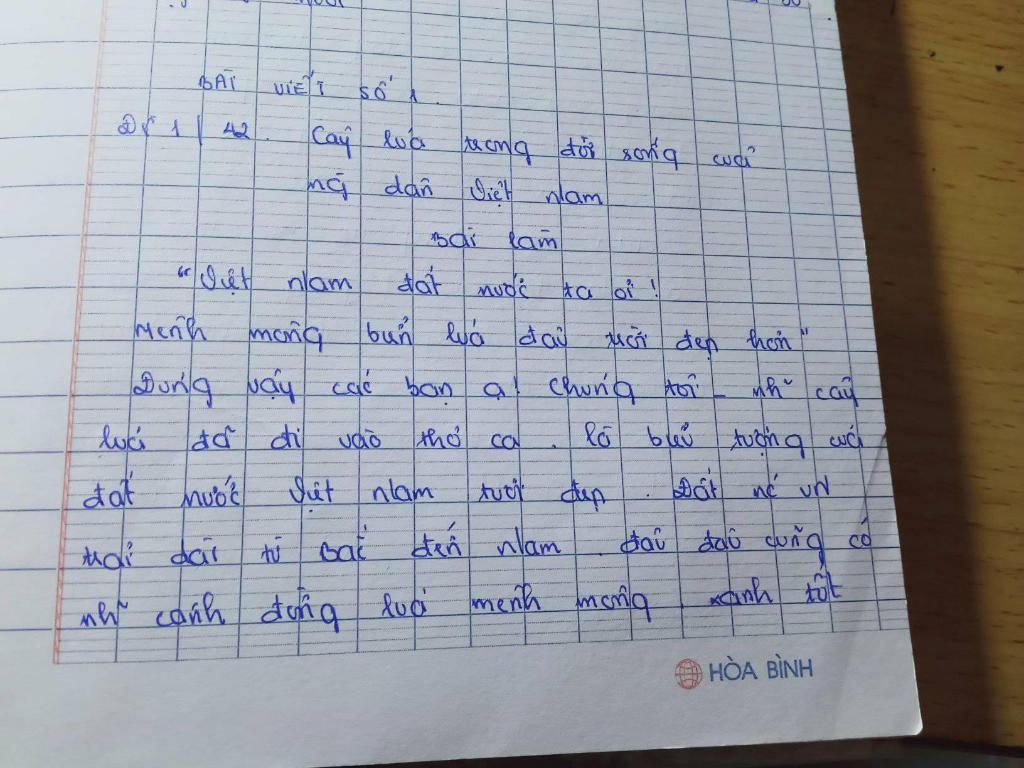 BÀI VIẾT SỐ 1.
Đề 1 | 42. Cây lúa trong đời sống của
ng dân Việt Nam
Bài làm
"Việt Nam đất nước ta ơi!
Mênh mông buển lúa đâu trời đẹp hơn"
Đúng vậy các bạn ạ! Chúng tôi - nhữ cây
lúa đã đi vào thơ ca. là biể tượng của
đất nước Việt Nam tươi đẹp. Đất nc VN
trải dài từ Bắc đến Nam. đâu đâu cũng có
nhữ cánh đồng lúa mênh mông xanh tốt
HÒA BÌNH